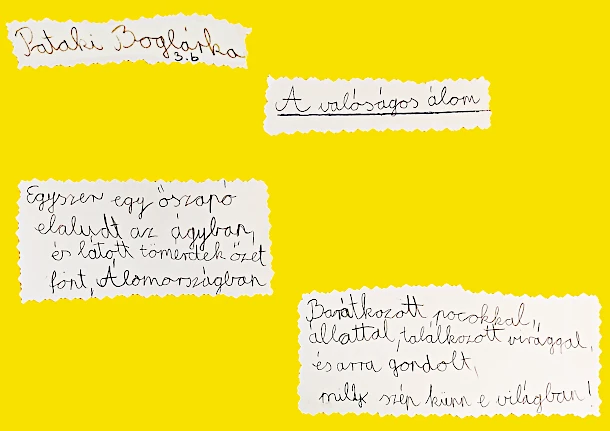 Pataki Boglárka
3.b
A valóságos álom
Egyszer egy őszapó
elaludt az ágyban,
és látott tömérdek őzet
fönt, Álomországban
Barátkozott pocokkal,
állattal, találkozott virággal,
és arra gondolt,
mily szép künn e világban!